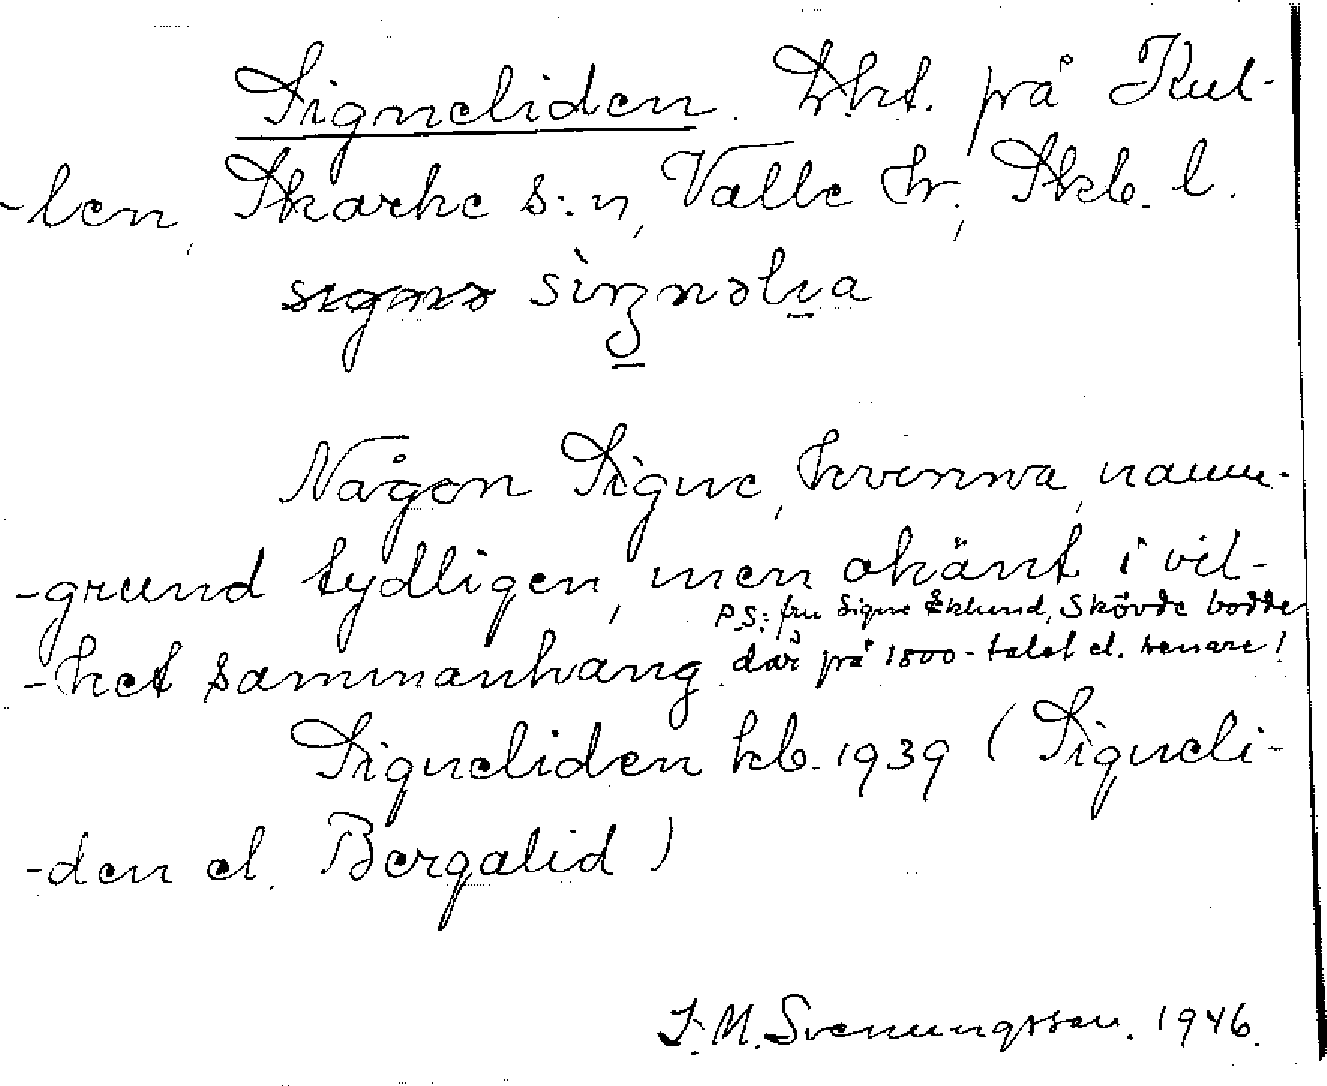 Signeliden. Lht. på Kul-
-len, Skarke s:n, Valle hr., Skb. l.
sìŋnəlia
Någon Signe, kvinna, namn-
-grund tydligen, men okänt i vil-
-ket sammanhang. PS: fru Signe Eklund, Skövde bodde
där på 1800-talet el. senare!
Signeliden kb. 1939 (Signeli-
-den el. Bergalid)
F. M. Svenungsson. 1946.